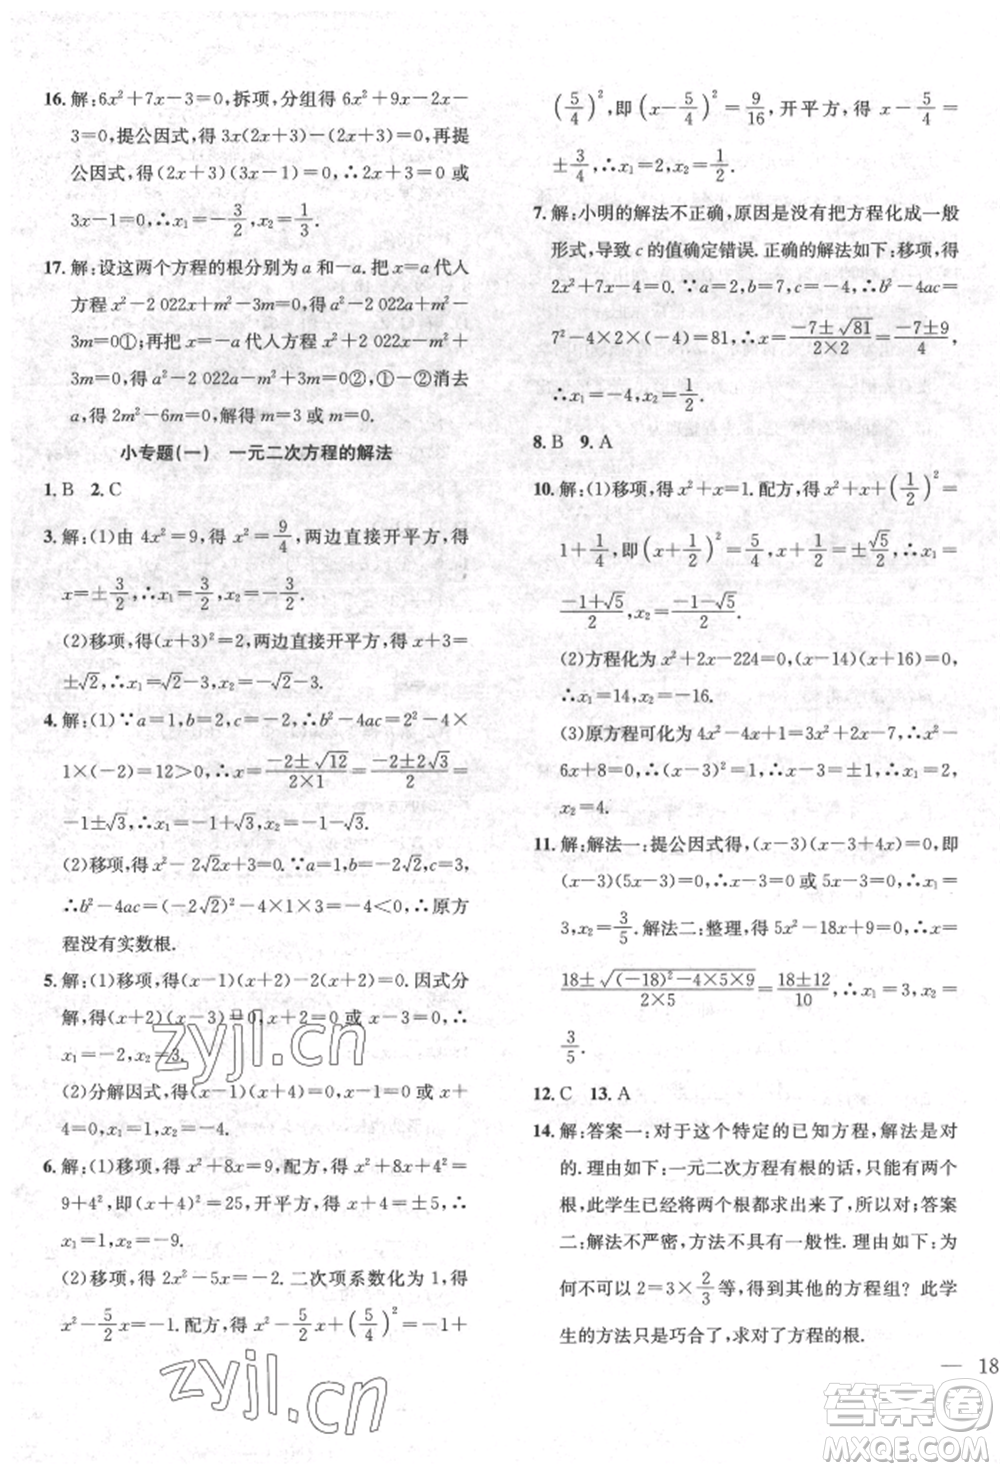 16. 解:6x²+7x-3=0,拆项,分组得 6x²+9x-2x-
3=0,提公因式,得 3x(2x+3)-(2x+3)=0,再提
公因式,得(2x+3)(3x-1)=0,∴2x+3=0 或
3x-1=0,∴x₁=-3/2,x₂=1/3.
17. 解:设这两个方程的根分别为 a 和-a.把 x=a 代人
方程 x²-2 022x-m²-3m=0,得 a²-2 022a-m²-
3m=0①;再把 x=-a 代人方程 x²+2 022x-m²+
3m=0,得 a²-2 022a-m²+3m=0②,①-②消去
a,得 2m²-6m=0,解得 m=3 或 m=0.
小专题(一) 一元二次方程的解法
1. B 2. C
3. 解:(1)由 4x²=9,得 x²=9/4,两边直接开平方,得
x=±3/2,∴x₁=3/2,x₂=-3/2.
(2)移项,得(x+3)²=2,两边直接开平方,得 x+3=
±√2,∴x₁=√2-3,x₂=-√2-3.
4. 解:(1)∵a=1,b=2,c=-2,∴b²-4ac=2²-4×
1×(-2)=12>0,∴x=(-2±√12)/(2×1)=(-2±2√3)/2=
-1±√3,∴x₁=-1+√3,x₂=-1-√3.
(2)移项,得 x²-2√2x+3=0.∵a=1,b=-2√2,c=3,
∴b²-4ac=(-2√2)²-4×1×3=-4<0,∴原方
程没有实数根.
5. 解:(1)移项,得(x-1)(x+2)-2(x+2)=0.因式分
解,得(x+2)(x-3)=0,∴x+2=0 或 x-3=0,∴
x₁=-2,x₂=3.
(2)分解因式,得(x-1)(x+4)=0,∴x-1=0 或 x+
4=0,∴x₁=1,x₂=-4.
6. 解:(1)移项,得 x²+8x=9,配方,得 x²+8x+4²=
9+4²,即(x+4)²=25,开平方,得 x+4=±5,∴
x₁=1,x₂=-9.
(2)移项,得 2x²-5x=-2.二次项系数化为 1,得
x²-5/2x=-1.配方,得 x²-5/2x+(5/4)²=-1+
(5/4)²,即(x-5/4)²=9/16,开平方,得 x-5/4=
±3/4,∴x₁=2,x₂=1/2.
7. 解:小明的解法不正确,原因是没有把方程化成一般
形式,导致 c 的值确定错误.正确的解法如下:移项,得
2x²+7x-4=0.∵a=2,b=7,c=-4,∴b²-4ac=
7²-4×2×(-4)=81,∴x=(-7±√81)/(2×2)=(-7±9)/4,
∴x₁=-4,x₂=1/2.
8. B 9. A
10. 解:(1)移项,得 x²+x=1.配方,得 x²+x+(1/2)²=
1+1/4,即(x+1/2)²=5/4,∴x+1/2=±√5/2,∴x₁=
(-1+√5)/2,x₂=(-1-√5)/2.
(2)方程化为 x²+2x-224=0,(x-14)(x+16)=0,
∴x₁=14,x₂=-16.
(3)原方程可化为 4x²-4x+1=3x²+2x-7,∴x²-
6x+8=0,∴(x-3)²=1,∴x-3=±1,∴x₁=2,
x₂=4.
11. 解:解法一:提公因式得,(x-3)(x-3+4x)=0,即
(x-3)(5x-3)=0,∴x-3=0 或 5x-3=0,∴x₁
=3,x₂=3/5.解法二:整理,得 5x²-18x+9=0,∴x=
(18±√((-18)²-4×5×9))/(2×5)=(18±12)/10,∴x₁=3,x₂=
3/5.
12. C 13. A
14. 解:答案一:对于这个特定的已知方程,解法是对
的.理由如下:一元二次方程有根的话,只能有两个
根,此学生已经将两个根都求出来了,所以对;答案
二:解法不严密,方法不具有一般性.理由如下:为
何不可以 2=3×2/3等,得到其他的方程组?此学
生的方法只是巧合了,求对了方程的根.
— 18
zyjl.cn
zyjl.cn
答案卷
MXQE.COM